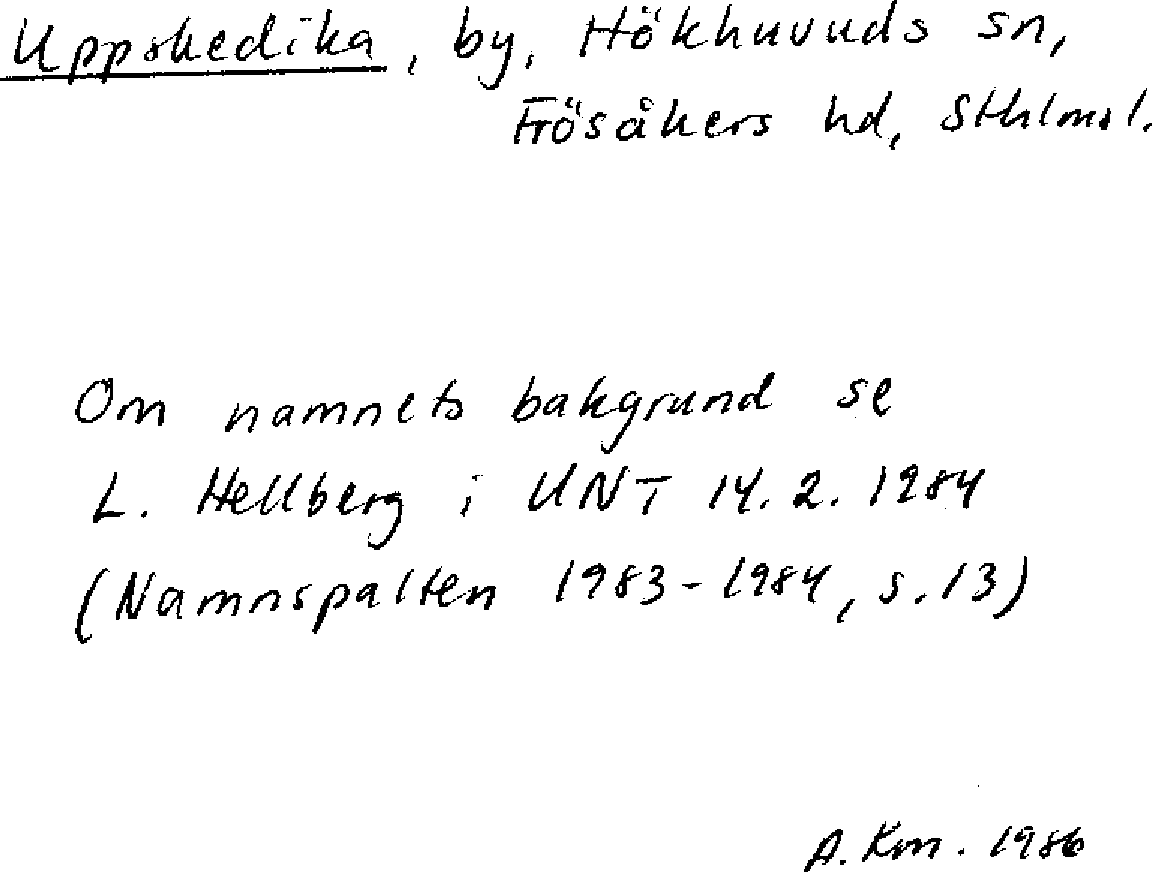 Uppskedika, by, Hökhuvuds sn,
Frösåkers hd, Sthlms l.
Om namnets bakgrund se
L. Hellberg i UNT 14.2.1984
(Namnspalten 1983-1984, s.13)
A. Km. 1986